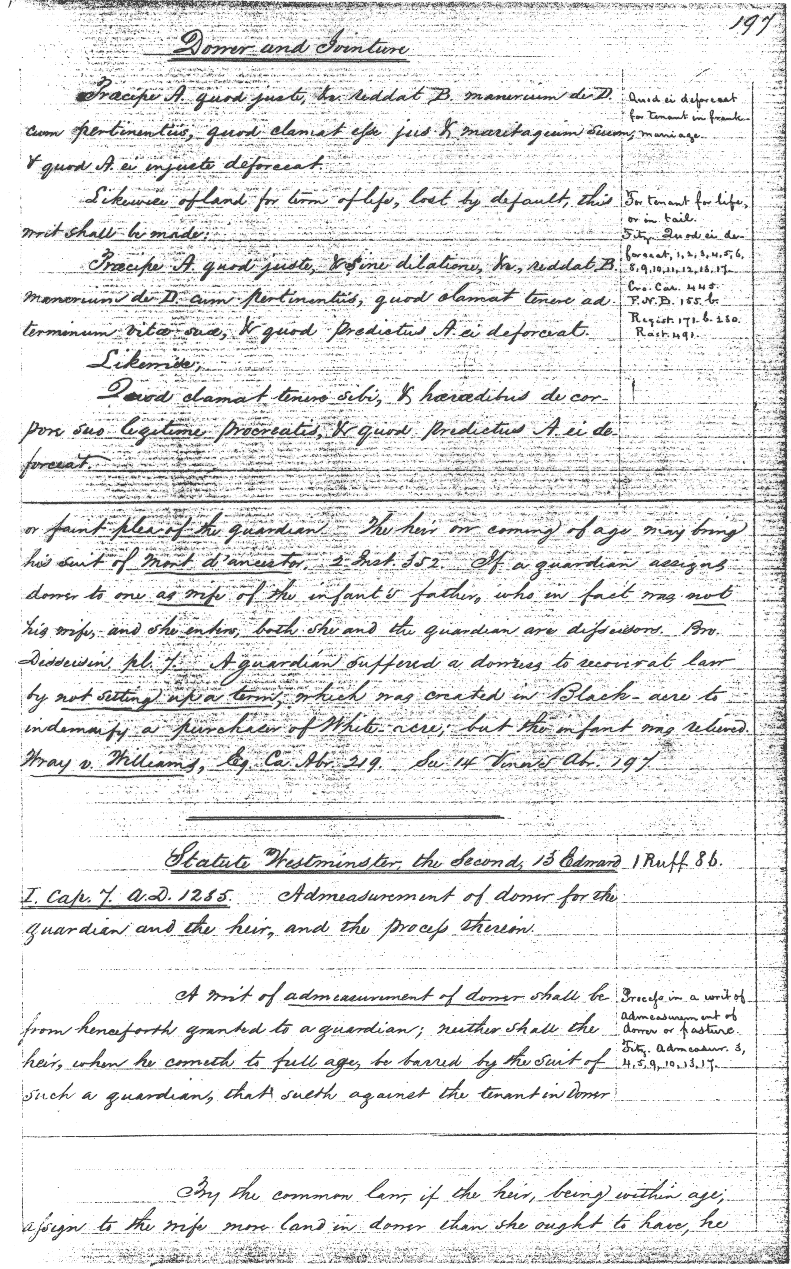 197
Dower and Jointure
Præcipe A. quod juste, &c. reddat B. manerium de D.
cum pertinentiis, quod clamat esse jus & maritagium suum,
& quod A. ei injuste deforceat.
Quod ei deforceat
for tenant in frank-
marriage.
Likewise of land for term of life, lost by default, this
writ shall be made:
Præcipe A. quod juste, & sine dilatione, &c., reddat B.
manerium de D. cum pertinentiis, quod clamat tenere ad
terminum vitæ suæ, & quod predictus A. ei deforceat.
Likewise,
Quod clamat tenere sibi, & hæredibus de cor-
pore suo legitime procreatis, & quod predictus A. ei de-
forceat.
For tenant for life,
or in tail.
Fitz. Quod ei de-
forceat, 1, 2, 3, 4, 5, 6,
8, 9, 10, 11, 12, 13, 17.
Cro. Car. 445.
F.N.B. 155. b.
Regist. 171. b. 230.
Rast. 491.
or faint plea of the guardian. The heir on coming of age may bring
his suit of Mort d'ancestor, 2 Inst. 352. If a guardian assigns
dower to one as wife of the infant's father, who in fact was not
his wife, and she enters, both she and the guardian are disseisors. Bro.
Disseisin, pl. 7. A guardian suffered a dowress to recover at law
by not setting up a term, which was created in Black-acre to
indemnify a purchaser of White-acre; but the infant was relieved.
Wray v. Williams, Eq. Ca. Abr. 219. See 14 Viner's Abr. 197
Statute Westminster, the Second, 13 Edward
I. Cap. 7. A.D. 1285. Admeasurement of dower for the
guardian and the heir, and the process therein.
1 Ruff. 86.
A writ of admeasurement of dower shall be
from henceforth granted to a guardian; neither shall the
heir, when he cometh to full age, be barred by the suit of
such a guardian, that sueth against the tenant in Dower
Process in a writ of
admeasurement of
dower or pasture.
Fitz. Admeasur. 3,
4, 5, 9, 10, 13, 17.
By the common law, if the heir, being within age,
assign to the wife more land in dower than she ought to have, he